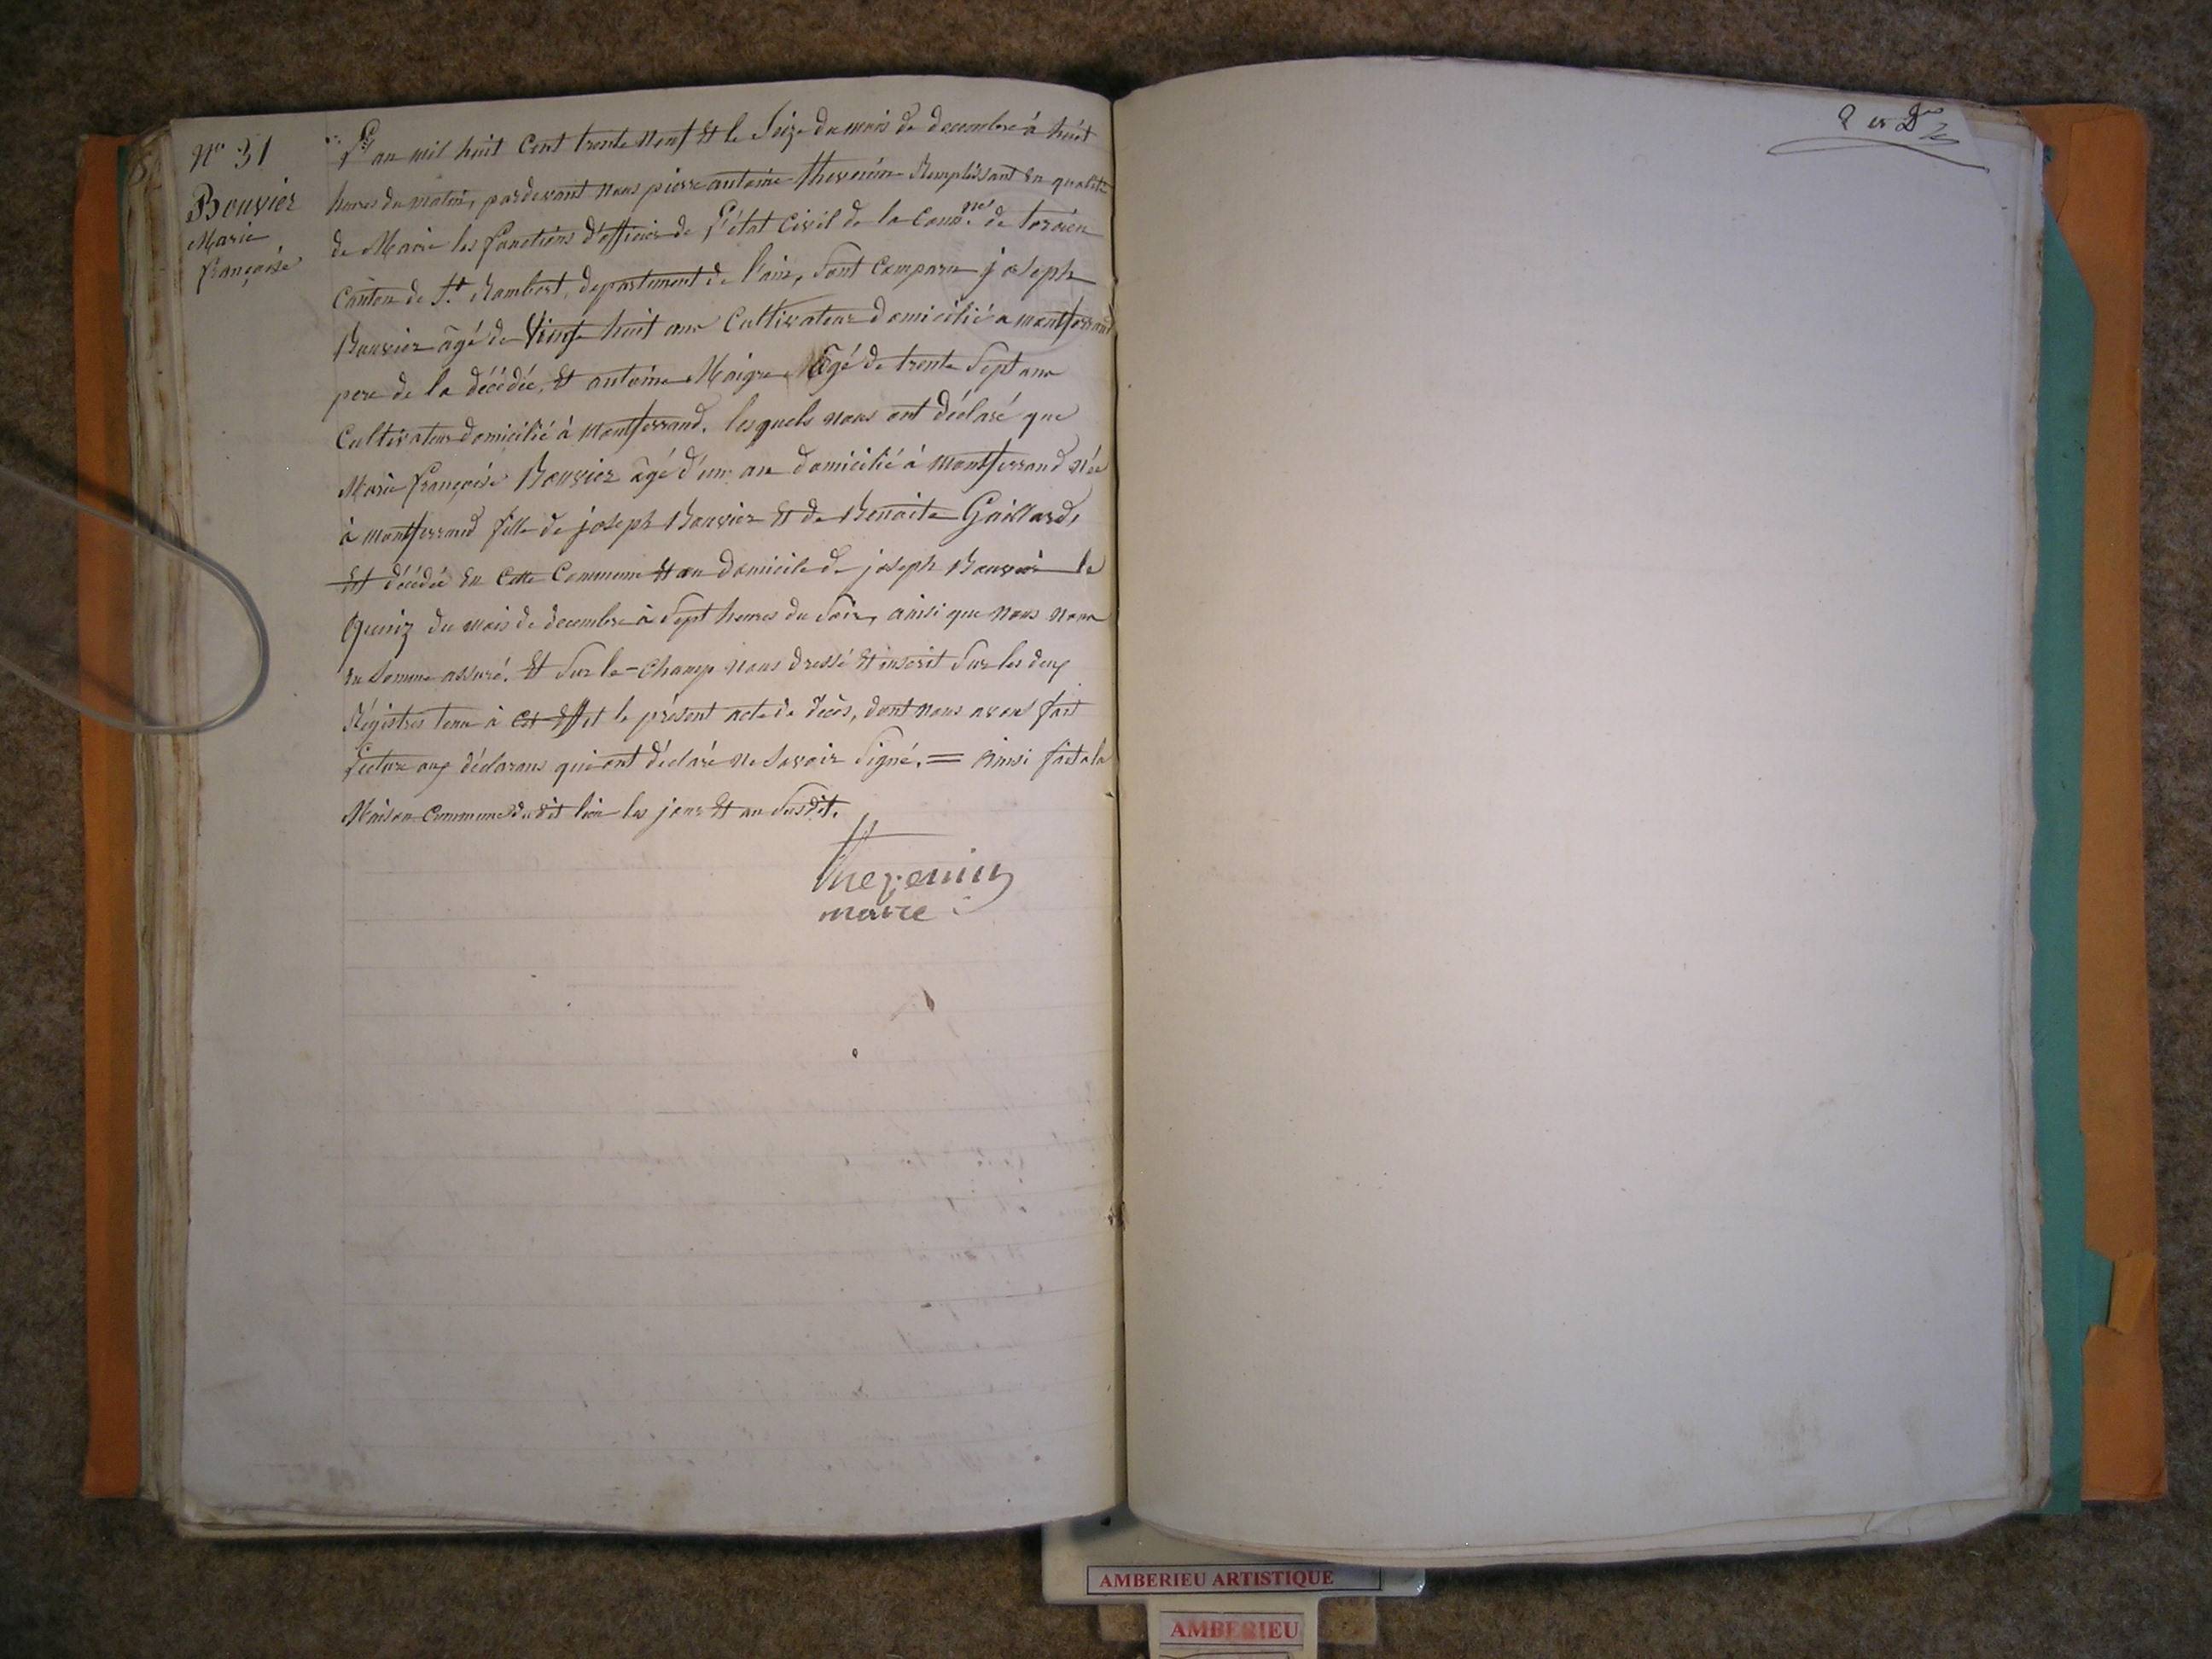 N° 31
Bouvier
Marie
françoise
L'an mil huit Cent trente neuf Et le Seize du mois de decembre à huit
heures du matin, pardevant nous pierre antoine thevenin Remplissant en qualité
de Maire les fonctions d'officier de l'état Civil de la Comm.ne de torcieu
Canton de S.t Rambert, departement de l'ain, Sont Comparu joseph
Bouvier âgé de Vingt huit ans Cultivateur domicilié a montferrand
pere de la décédée, Et antoine Maigre âgé de trente Sept ans
Cultivateur domicilié à montferrand. lesquels nous ont déclaré que
Marie françoise Bouvier âgé d'un an domicilié à montferrand née
à montferrand fille de joseph Bouvier Et de Benoite Gaillard,
Est décédée En Cette Commune Et au domicile de joseph Bouvier le
Quinz du mois de decembre à Sept heures du Soir, ainsi que nous nous
en Somme assuré. Et Sur le-Champ nous dressé Et inscrit Sur les deux
Régistres tenu à cet Effet le présent acte de décès, dont nous avons fait
Lecture aux déclarans qui ont déclaré ne Savoir Signé. = Ainsi fait a la
Maison Commune dudit lieu les jour Et an Susdit.
Thevenin
maire
AMBERIEU ARTISTIQUE
AMBERIEU